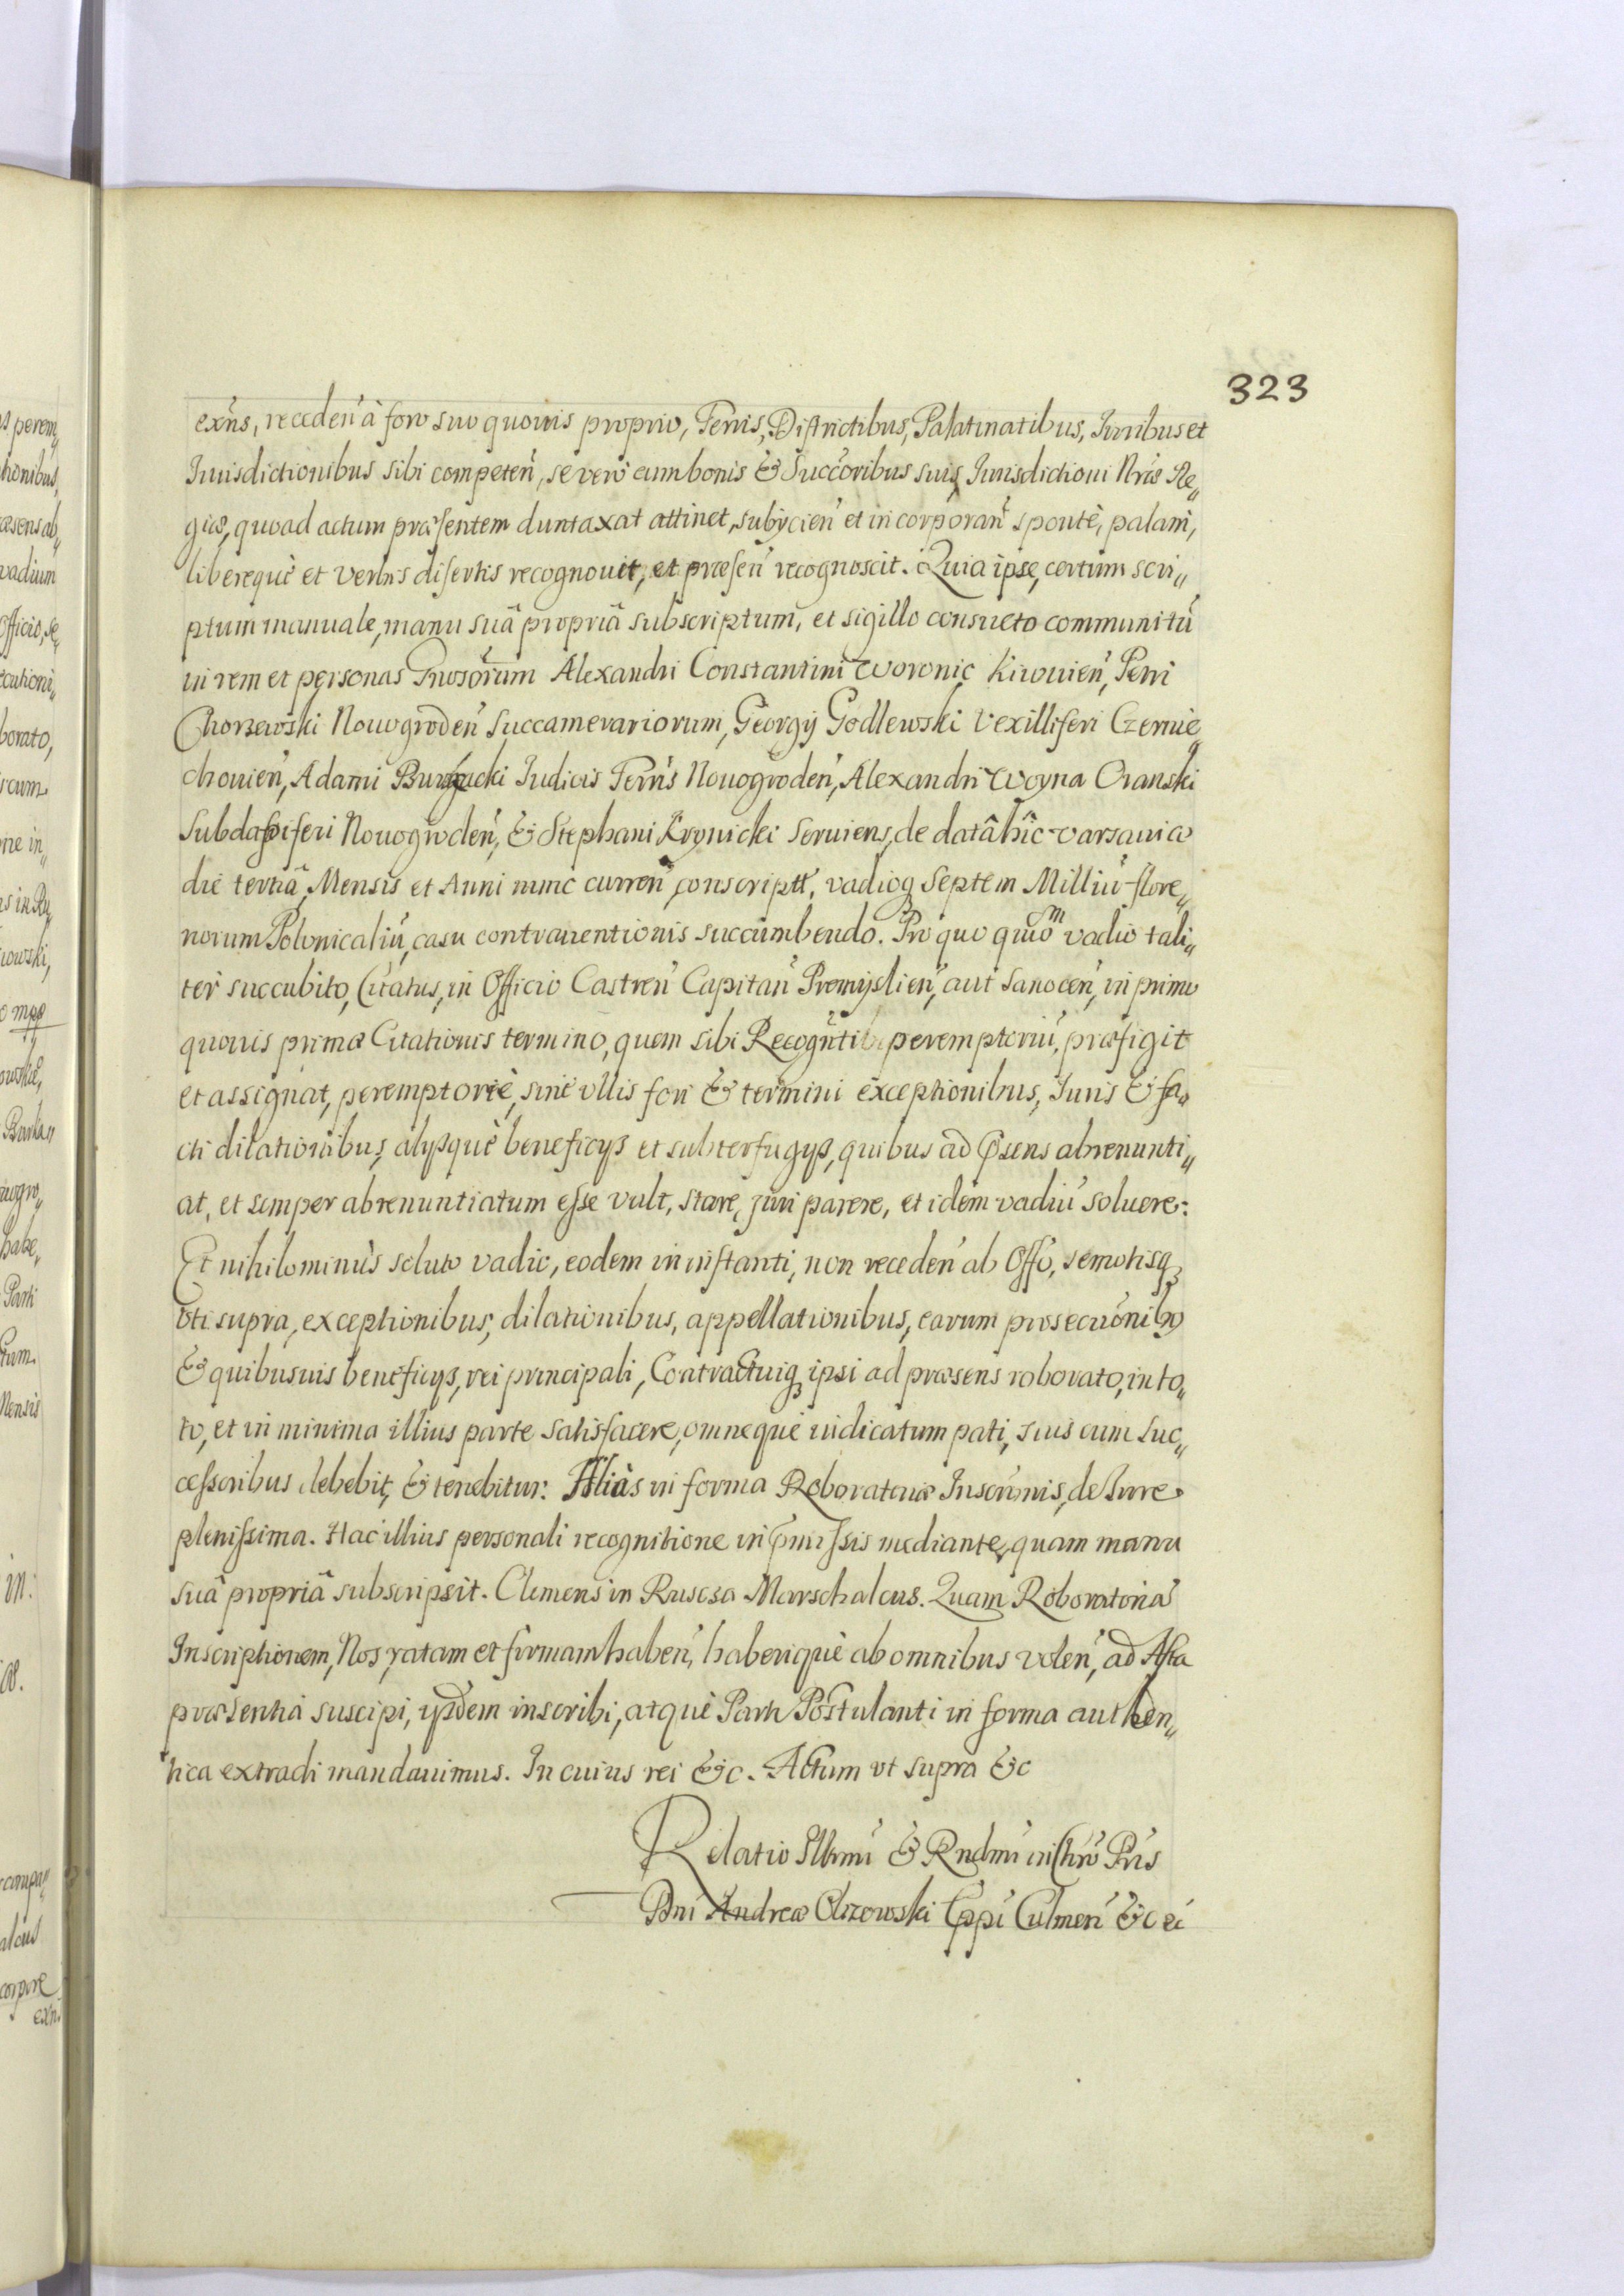 323
exn̄s, receden̄ à foro suo quouis proprio, Terris, Districtibus, Palatinatibus, Iuribus et
Iurisdictionibus sibi competen̄, se vero cum bonis & Succ̄oribus suis, Iurisdictioni Nr̄æ Re„
giæ, quoad actum præsentem duntaxat attinet, subÿcien̄ et incorporan̄ spontè, palam,
liberequè et verbis disertis recognouit, et præsen̄ recognoscit. Quia ipse, certum scri„
ptum manuale, manu suâ propriâ subscriptum, et sigillo consueto communitū
in rem et personas Gn̄osorum Alexandri Constantini Woronic Kiiouien̄, Petri
Chorzewski Nouogroden̄ Succamerariorum, Georgÿ Godlewski Vexilliferi Czernie„
chouien̄, Adami Burzucki Iudicis Terrīs Nouogroden̄, Alexandri Woyna Oranski
Subdapiferi Nouogroden̄, & Stephani Krynicki seruiens, de datâ hîc Varsauiæ
die tertiâ, Mensis et Anni nunc curren̄, conscriptū, vadioq; Septem Milliū flore„
norum Polonicaliū, casu contrauentionis succumbendo. Pro quo quidem vadio tali„
ter succubito, Citatus, in Officio Castren̄ Capitan̄ Premÿslien̄, aut Sanocen̄, in primo
quouis primæ Citationis termino, quem sibi Recogn̄ti peremptoriū, præfigit
et assignat, peremptoriè, sinè vllis fori & termini exceptionibus, Iuris & fa„
cti dilationibus, alÿsquè beneficÿs et subterfugÿs, quibus ad p̄sens abrenunti„
at, et semper abrenuntiatum esse vult, stare, juri parere, et idem vadiū soluere:
Et nihilominùs soluto vadio, eodem in instanti, non receden̄ ab Offō, semotisq;
vti supra, exceptionibus, dilationibus, appellationibus, earum prosecuōnibq
& quibusuis beneficÿs, rei principali, Contractuiq; ipsi ad præsens roborato, in to„
to, et in minima illius parte satisfacere, omnequè iudicatum pati, suis cum suc„
cessoribus debebit, & tenebitur. Aliàs in forma Roboratoriæ Inscrip̄nis, de Iure
plenissima. Hac illius personali recognitione in p̄missis mediante, quam manu
suâ propriâ subscripsit. Clemens in Ruscsa Marschalcus. Quam Roboratoriā
Inscriptionem, Nos, ratam et firmam haben̄, haberiquè ab omnibus volen̄, ad Acta
præsentia suscipi, ÿsdem inscribi, atquè Parti Postulanti in forma authen„
tica extradi mandauimus. In cuius rei &c. Actum vt supra &c
Relatio Illm̄i & Rndm̄i in Chr̄o Pr̄is
Dn̄i Andreæ Olszowski Ep̄pi Culmen̄ &c &c